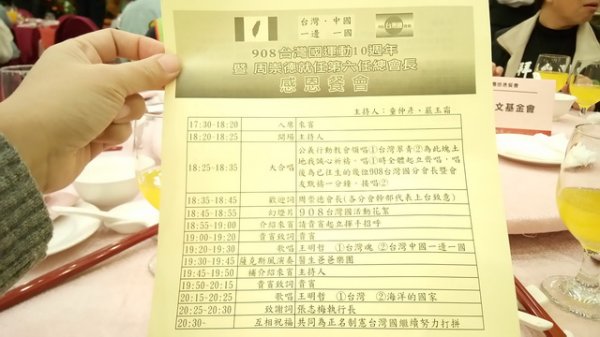 台灣．中國
一邊 一國
908台灣國運動10週年
暨 周崇德就任第六任總會長
感恩餐會
主持人：童仲彥．嚴玉霜
17:30-18:20 入席 來賓
18:20-18:25 開場 主持人
18:25~18:35 大合唱 公義行動教會領唱①台灣翠青②為此塊土
地我誠心祈禱，唱①時全體起立齊唱，唱
後為已往生的幾位908台灣國分會長暨會
友默禱一分鐘，接唱②
18:35-18:45 歡迎詞 周崇德會長(各分會幹部代表上台致意)
18:45-18:55 幻燈片 908台灣國活動花絮
18:55-19:00 介紹來賓 請貴賓起立揮手招呼
19:00-19:20 貴賓致詞 貴賓
19:20-19:30 歌唱 王明哲 ①台灣魂 ②台灣中國一邊一國
19:30-19:45 薩克斯風演奏 醫生爸爸樂團
19:45-19:50 補介紹來賓 主持人
19:50-20:15 貴賓致詞 貴賓
20:15-20:25 歌唱 王明哲 ①台灣 ②海洋的國家
20:25-20:30 致謝詞 張志梅執行長
20:30~ 互相祝福 共同為正名制憲台灣國繼續努力打拼
文基金會